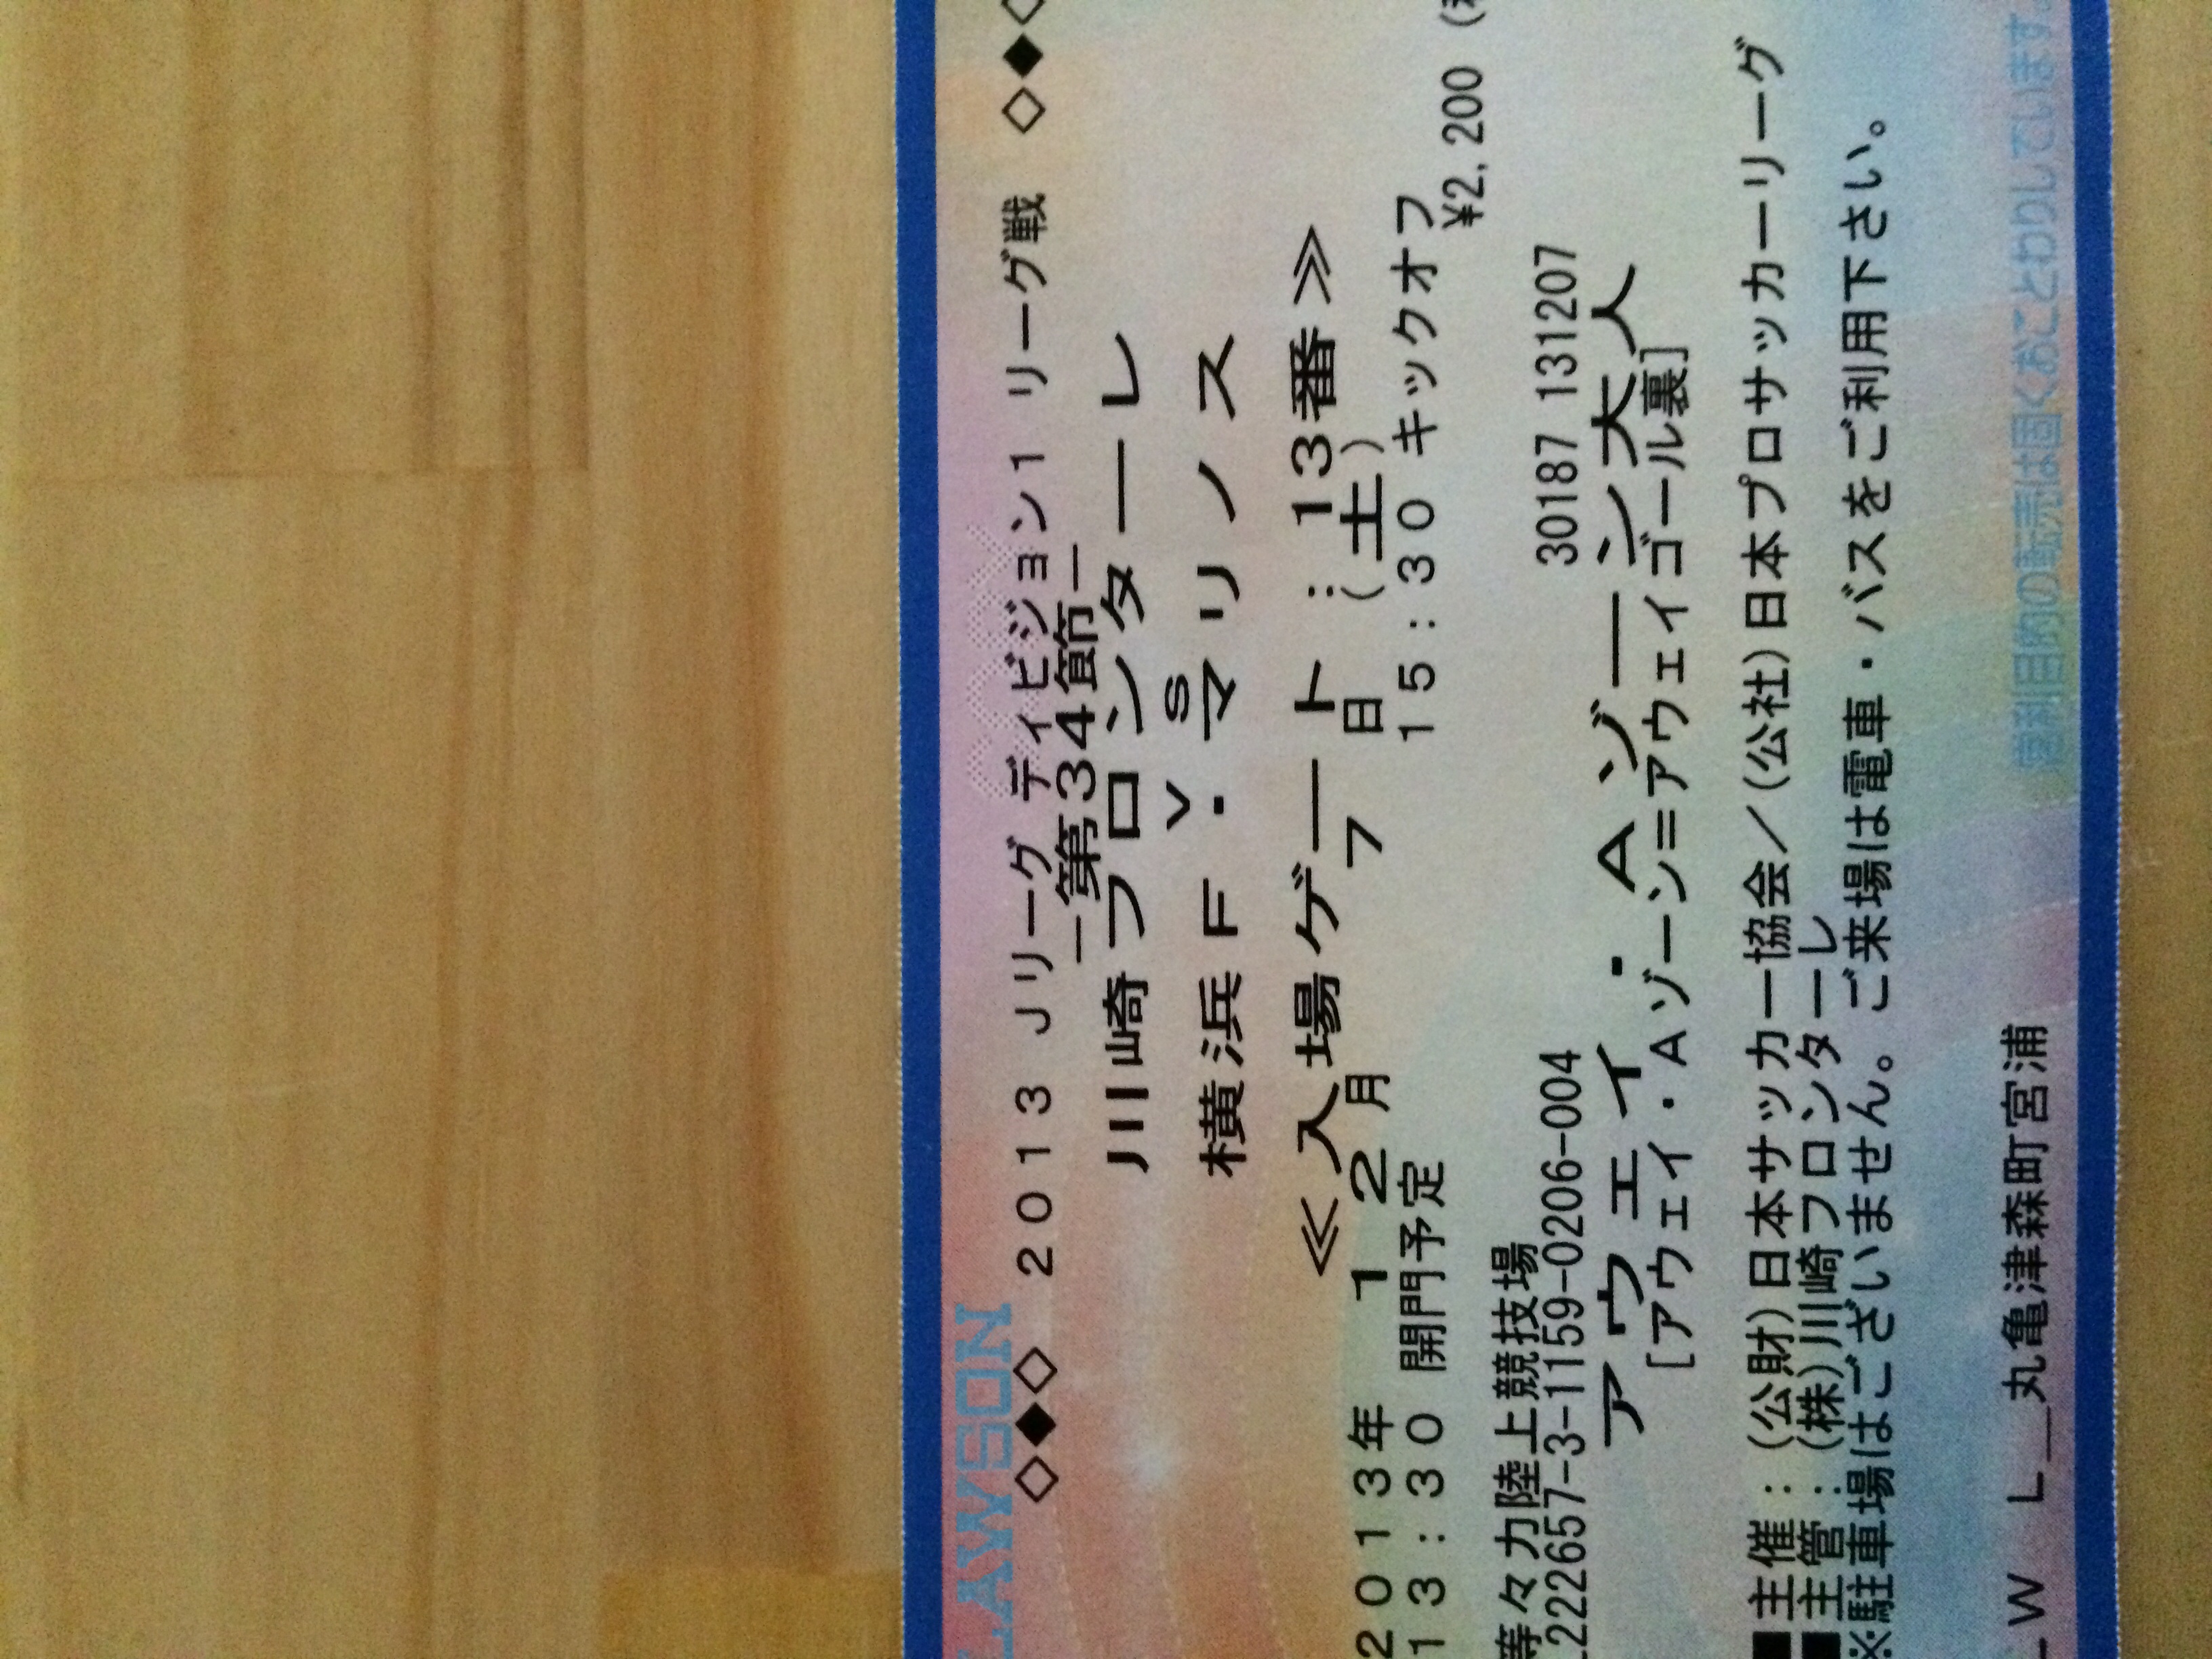 LAWSON
◇◆◇ 2013 Jリーグ ディビジョン1 リーグ戦 ◇◆◇
―第34節―
川崎フロンターレ
VS
横浜F・マリノス
≪入場ゲート:13番≫
2013年 12月 7日(土)
13:30 開門予定 15:30 キックオフ
¥2,200
等々力陸上競技場
222657-3-1159-0206-004 30187 131207
アウェイ・Aゾーン大人
[アウェイ・Aゾーン=アウェイゴール裏]
■主催:(公財)日本サッカー協会/(公社)日本プロサッカーリーグ
■主管:(株)川崎フロンターレ
※駐車場はございません。ご来場は電車・バスをご利用下さい。
営利目的の転売は固くおことわりしています。
W L_丸亀津森町宮浦